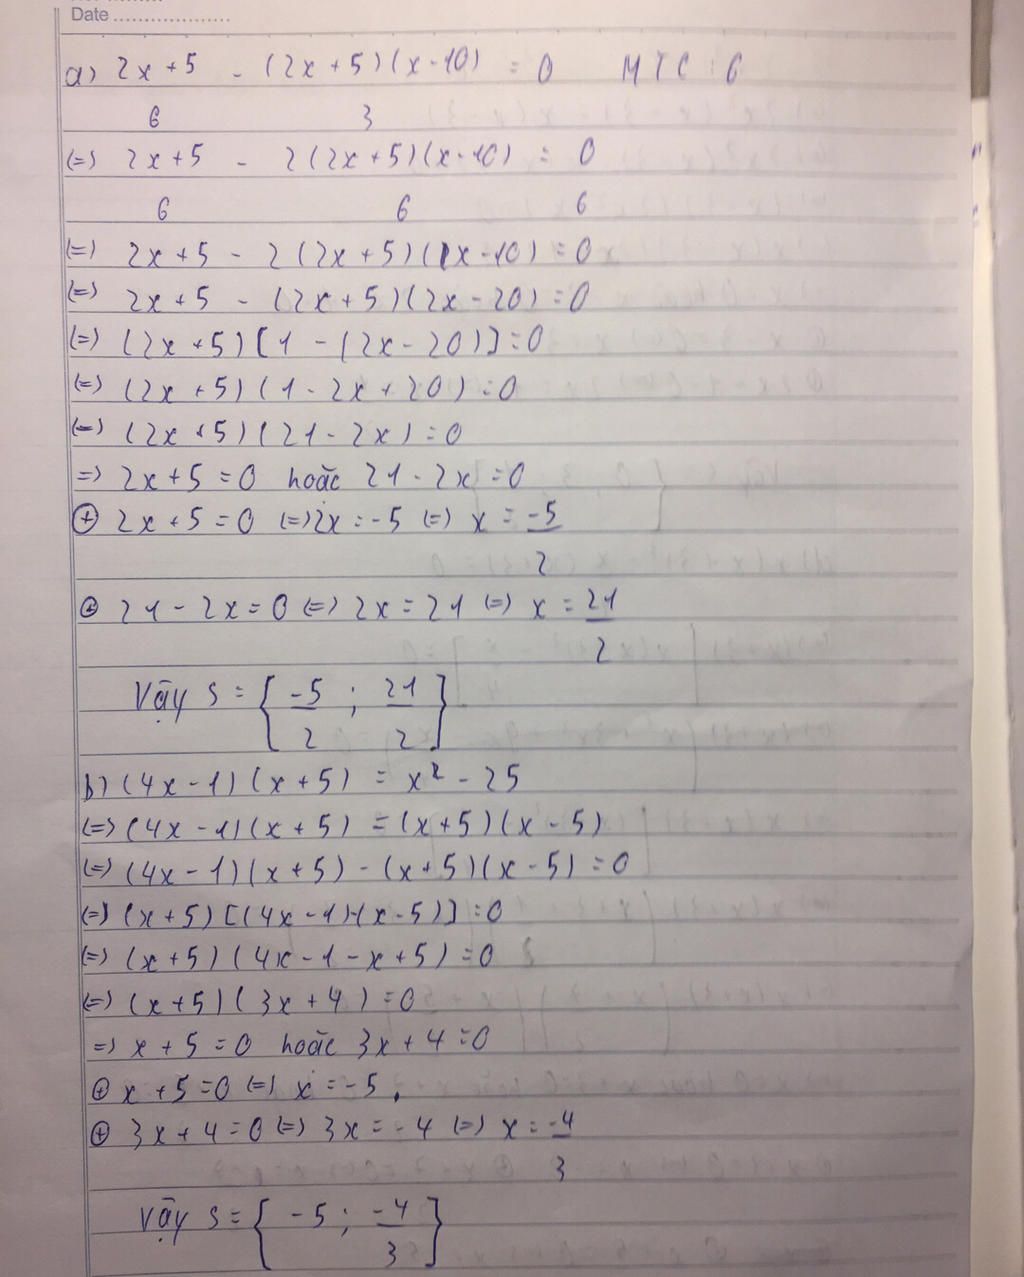 Date ....................
a) 2x+5 - (2x+5)(x-10) = 0 MTC : 6
6 3
(=) 2x+5 - 2(2x+5)(x-10) = 0
6 6 6
(=) 2x+5 - 2(2x+5)(x-10) = 0
(=) 2x+5 - (2x+5)(2x-20) = 0
(=) (2x+5)[1-(2x-20)] = 0
(=) (2x+5)(1-2x+20) = 0
(=) (2x+5)(21-2x) = 0
=) 2x+5 = 0 hoặc 21-2x = 0
⊕ 2x+5 = 0 (=) 2x = -5 (=) x = -5
2
⊕ 21-2x = 0 (=) 2x = 21 (=) x = 21
2
Vậy S = { -5 ; 21 }
2 2
b) (4x-1)(x+5) = x² - 25
(=) (4x-1)(x+5) = (x+5)(x-5)
(=) (4x-1)(x+5) - (x+5)(x-5) = 0
(=) (x+5)[(4x-1)-(x-5)] = 0
(=) (x+5)(4x-1-x+5) = 0
(=) (x+5)(3x+4) = 0
=) x+5 = 0 hoặc 3x+4 = 0
⊕ x+5 = 0 (=) x = -5.
⊕ 3x+4 = 0 (=) 3x = -4 (=) x = -4
3
Vậy S = { -5 ; -4 }
3